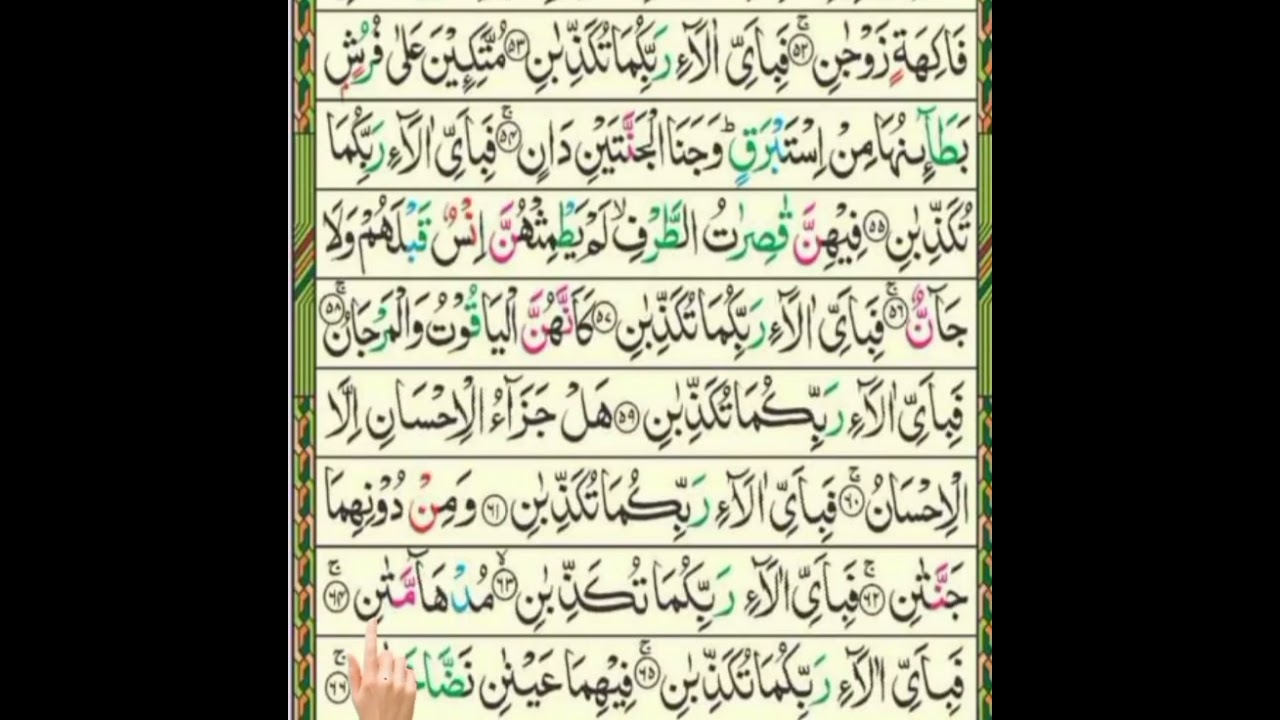 فَاكِهَةٍ زَوْجٰنِ ۚ‏﴿۵۲﴾ فَبِاَىِّ اٰلَآءِ رَبِّكُمَا تُكَذِّبٰنِ ﴿۵۳﴾ مُتَّكِـِٕيْنَ عَلٰى فُرُشٍۭ
بَطَآىِٕنُهَا مِنْ اِسْتَبْرَقٍ ؕ وَجَنَا الْجَنَّتَيْنِ دَانٍ ۚ‏﴿۵۴﴾ فَبِاَىِّ اٰلَآءِ رَبِّكُمَا
تُكَذِّبٰنِ ﴿۵۵﴾ فِيْهِنَّ قٰصِرٰتُ الطَّرْفِ ۙ لَمْ يَطْمِثْهُنَّ اِنْسٌ قَبْلَهُمْ وَلَا
جَآنٌّ ۚ‏﴿۵۶﴾ فَبِاَىِّ اٰلَآءِ رَبِّكُمَا تُكَذِّبٰنِ ﴿۵۷﴾ كَاَنَّهُنَّ الْيَاقُوْتُ وَالْمَرْجَانُ ۚ‏﴿۵۸﴾
فَبِاَىِّ اٰلَآءِ رَبِّكُمَا تُكَذِّبٰنِ ﴿۵۹﴾ هَلْ جَزَآءُ الْاِحْسَانِ اِلَّا
الْاِحْسَانُ ۚ‏﴿۶۰﴾ فَبِاَىِّ اٰلَآءِ رَبِّكُمَا تُكَذِّبٰنِ ﴿۶۱﴾ وَمِنْ دُوْنِهِمَا
جَنَّتٰنِ ۚ‏﴿۶۲﴾ فَبِاَىِّ اٰلَآءِ رَبِّكُمَا تُكَذِّبٰنِ ۙ‏﴿۶۳﴾ مُدْهَآمَّتٰنِ ۚ‏﴿۶۴﴾
فَبِاَىِّ اٰلَآءِ رَبِّكُمَا تُكَذِّبٰنِ ۚ‏﴿۶۵﴾ فِيْهِمَا عَيْنٰنِ ۚ‏﴿۶۶﴾